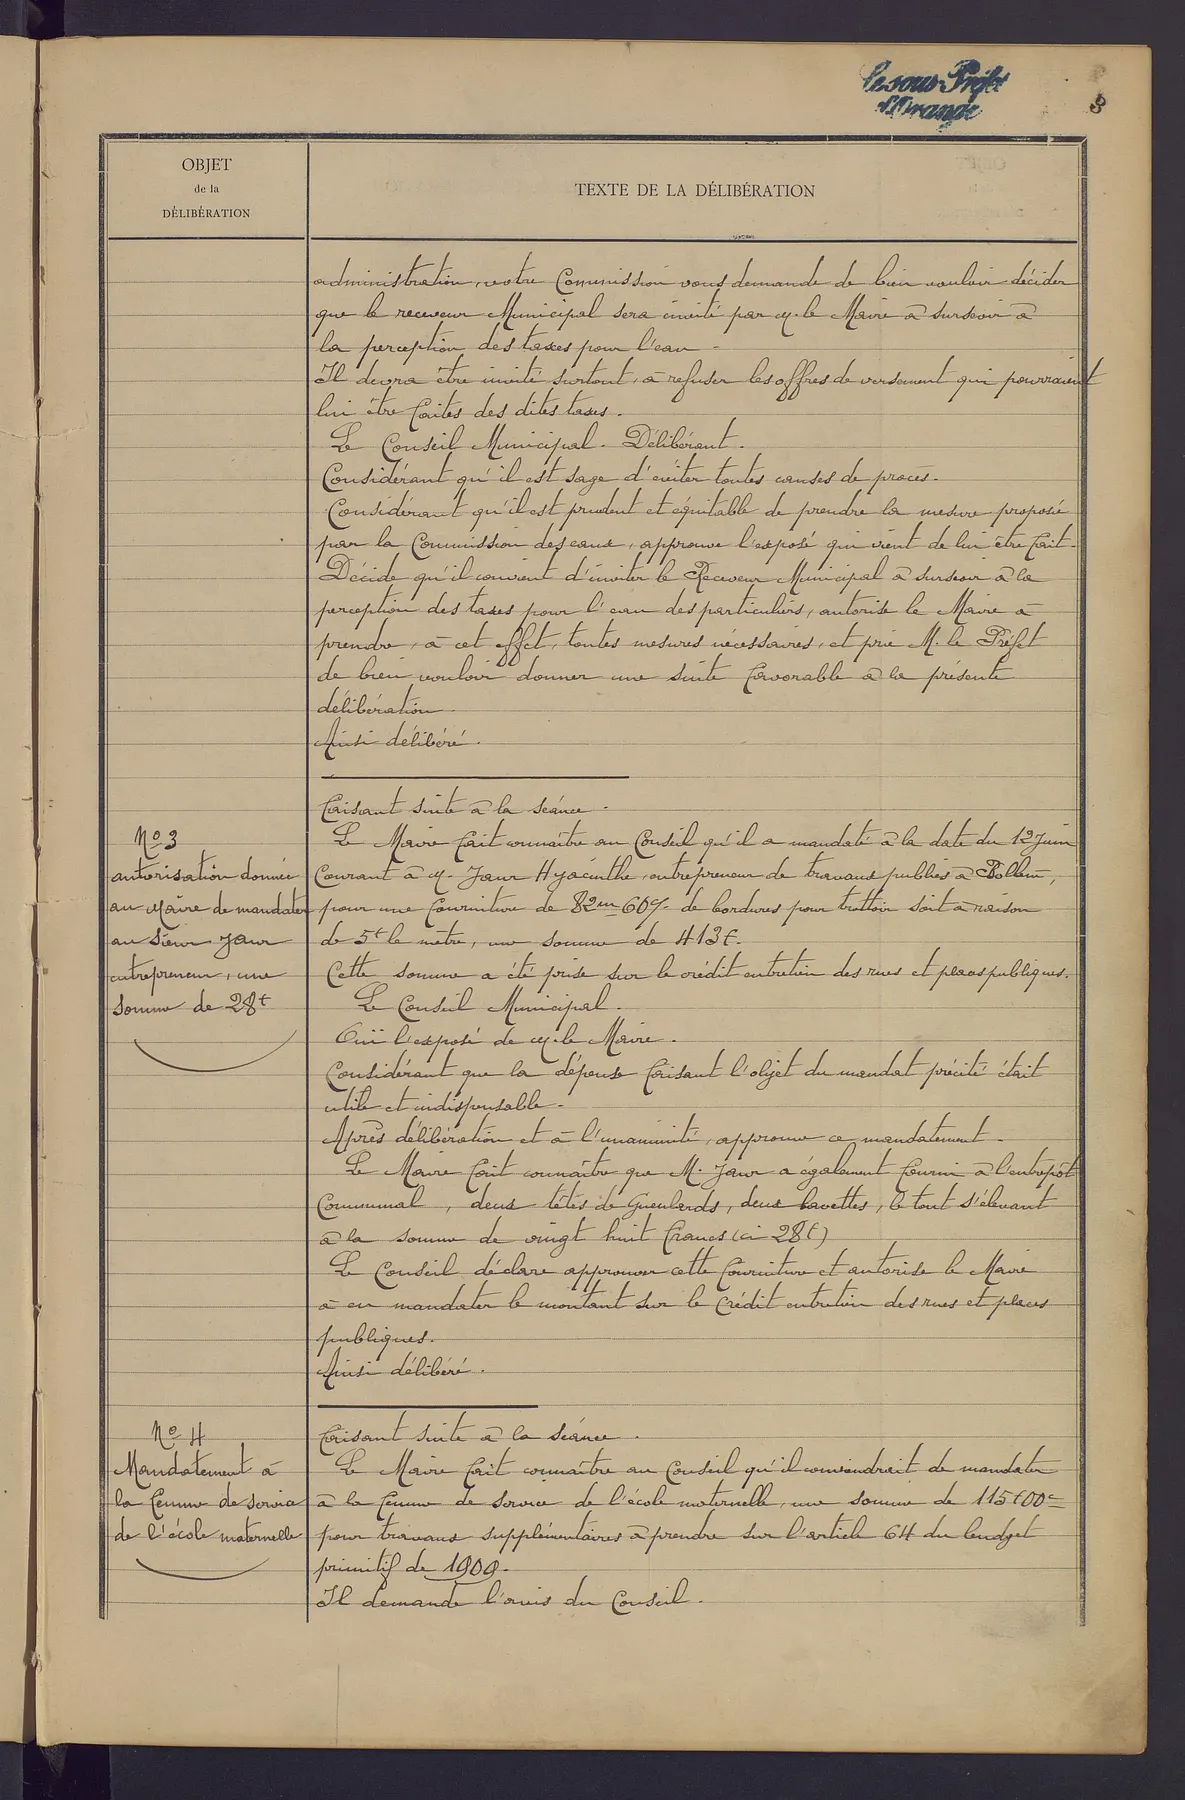 le sous-Préfet
d'Orange
3
OBJET
de la
DÉLIBÉRATION
TEXTE DE LA DÉLIBÉRATION
administration, votre Commission vous demande de bien vouloir décider
que le receveur Municipal sera invité par M. le Maire à surseoir à
la perception des taxes pour l'eau -
Il devra être invité surtout, à refuser les offres de versement qui pourraient
lui être faites des dites taxes.
Le Conseil Municipal. Délibérant.
Considérant qu'il est sage d'éviter toutes causes de procès.
Considérant qu'il est prudent et équitable de prendre la mesure proposée
par la Commission des eaux, approuve l'exposé qui vient de lui être fait.
Décide qu'il convient d'inviter le Receveur Municipal à surseoir à la
perception des taxes pour l'eau des particuliers, autorise le Maire à
prendre, à cet effet, toutes mesures nécessaires, et prie M. le Préfet
de bien vouloir donner une suite favorable à la présente
délibération
Ainsi délibéré.
Faisant suite à la séance.
N° 3
autorisation donnée
au Maire de mandater
au Sieur Jaur
entrepreneur, une
somme de 28f
Le Maire fait connaître au Conseil qu'il a mandaté à la date du 12 Juin
Courant à M. Jaur Hyacinthe, entrepreneur de travaux publics à Bollène,
pour une fourniture de 82m 60c. de bordures pour trottoir soit à raison
de 5f le mètre, une somme de 413f.
Cette somme a été prise sur le crédit entretien des rues et places publiques.
Le Conseil Municipal.
Ouï l'exposé de M. le Maire.
Considérant que la dépense faisant l'objet du mandat précité était
utile et indispensable.
Après délibération et à l'unanimité, approuve ce mandatement.
Le Maire fait connaître que M. Jaur a également fourni à l'entrepôt
Communal, deux têtes de Gueulards, deux bavettes, le tout s'élevant
à la somme de vingt huit francs (ci 28f)
Le Conseil déclare approuver cette fourniture et autorise le Maire
à en mandater le montant sur le Crédit entretien des rues et places
publiques.
Ainsi délibéré.
N° 4
Mandatement à
la femme de service
de l'école maternelle
Faisant suite à la séance.
Le Maire fait connaître au Conseil qu'il conviendrait de mandater
à la femme de service de l'école maternelle, une somme de 115f00c
pour travaux supplémentaires à prendre sur l'article 64 du budget
primitif de 1909.
Il demande l'avis du Conseil.